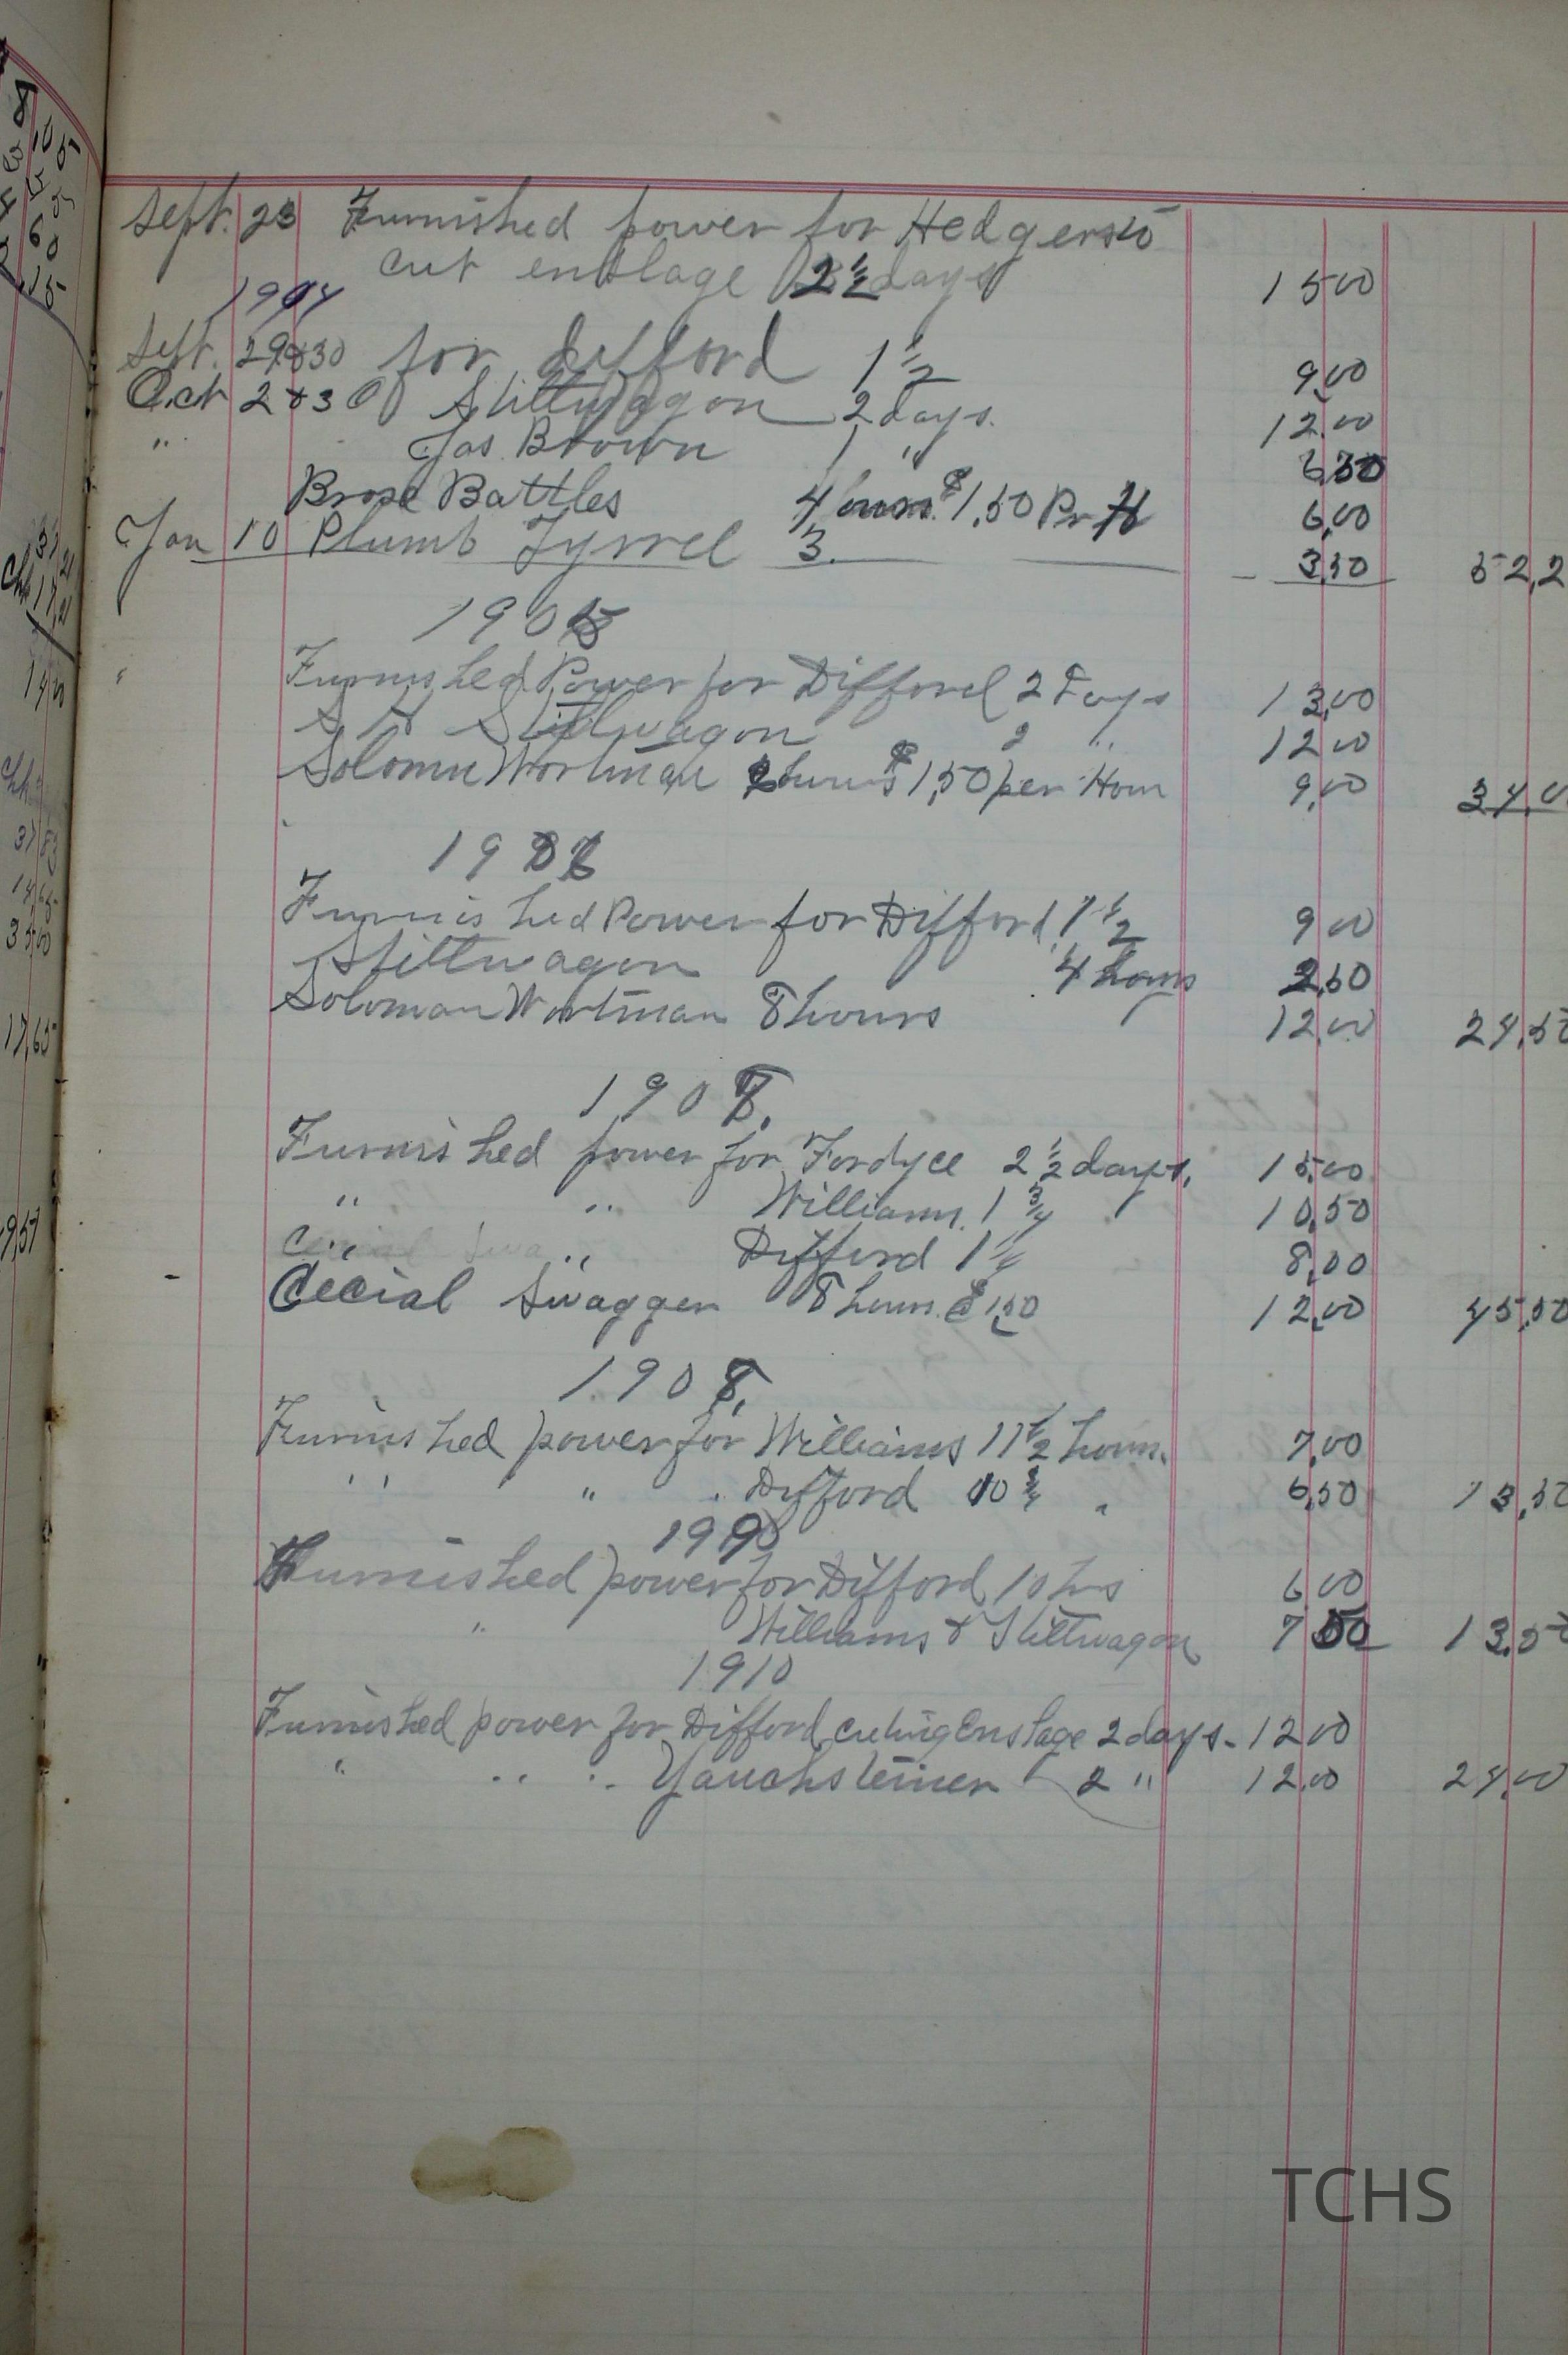 Sept. 23 Furnished power for Hedgers to
cut enslage 2 1/2 days 15 00
1904
Sept. 29 & 30 for Difford 1 1/2 9,00
Oct 2 & 3 Stittwagon 2 days. 12.00
" Jas Brown 1 "
Brose Battles 4 hours $1,50 Pr H 6,00
Jan 10 Plumb Tyrrel 3. 3,50 52,2
1905
Furnished Power for Difford 2 Days 13,00
S H Stittwagon 2 " 12 00
Solomn Wortman hours $1,50 per Hour 9,00 34,0
1906
Furnished Power for Difford 1 1/2 9 00
Stittwagon 4 hours 2,50
Soloman Wortman 8 hours 12,00 24,50
190
Furnished power for Fordyce 2 1/2 days, 15,00
" " Williams. 1 3/4 10,50
" " Difford 1 8,00
Cecial Swagger 8 hours. $1,50 12,00 45,50
1908,
Furnished power for Williams 11 1/2 hours. 7,00
" " Difford 10 3/4 " 6,50 13,50
1909
Furnished power for Difford 10 hrs 6,00
" Williams & Stittwagon 7 50 13.50
1910
Furnished power for Difford cutting Enslage 2 days - 12 00
" " " Yauchsteiner 2 " 12.00 24,00
8
10 5
6 0
15
37
17,21
17,65
35,00
TCHS